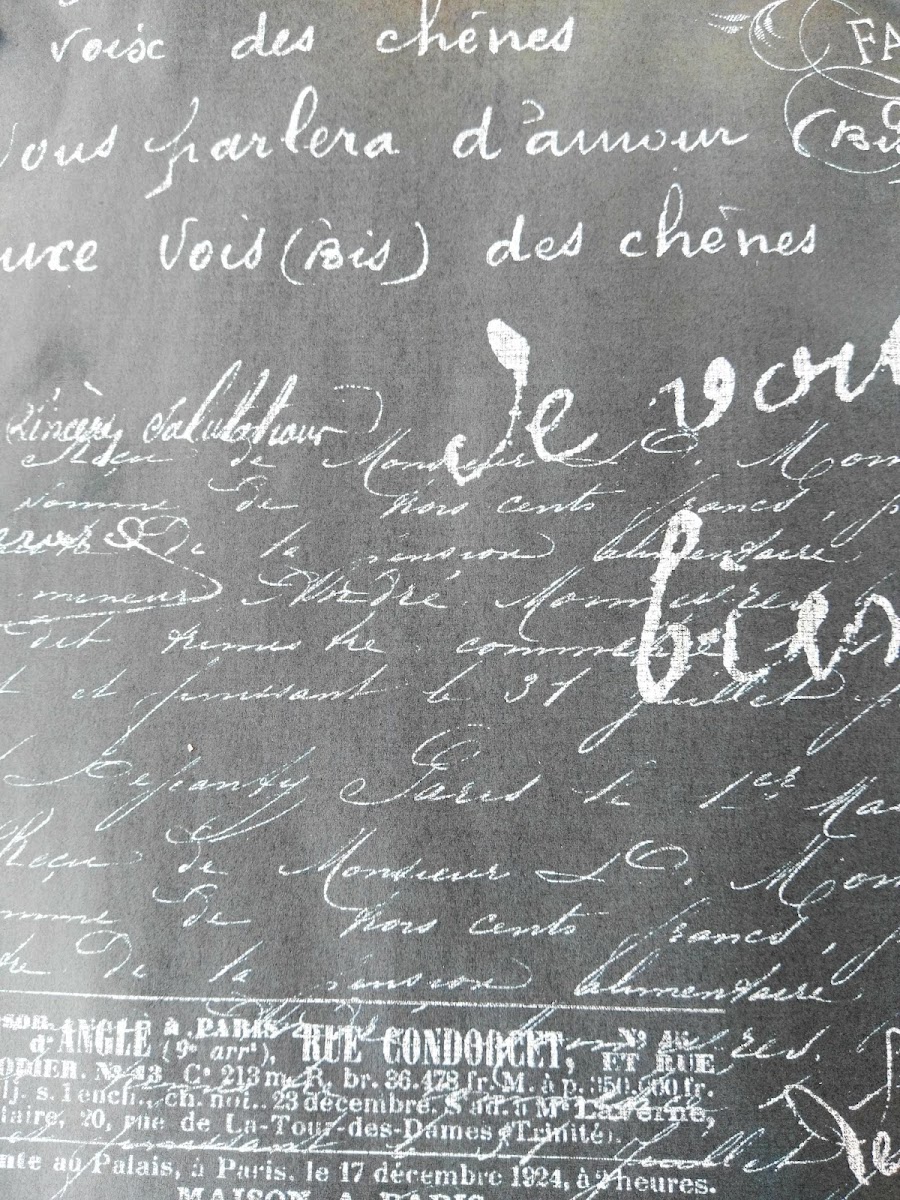 voix des chênes
FA
Vous parlera d'amour (Bis
uxe Vois (Bis) des chênes
Je vou
Sincères Salutations
Reçu de Monsieur D. Mom
somme de trois cents francs, p
de la pension alimentaire
mineurs André
dit trimestre commence
t et finissant le 31 juillet p
Paris le 1er Ma
bien
Reçu de Monsieur D. Mom
omme de trois cents francs,
de la pension alimentaire.
d'ANGLE à PARIS (9e arrt), RUE CONDORCET, No 46
ET RUE
ODIER, No 13 Ce 213m R. br. 36.478 fr. M. à p. 350.000 fr.
lj. s. 1 ench., ch. not.. 23 décembre. S'ad. à Me Laverne,
taire, 20, rue de La-Tour-des-Dames (Trinité).
31 juillet
Je
nte au Palais, à Paris, le 17 décembre 1924, à 2 heures.
MAISON A PARIS